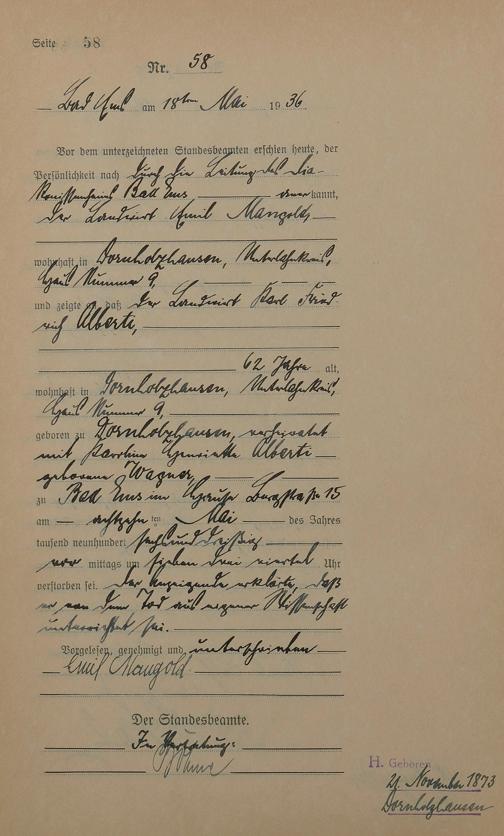 Seite 58
Nr. 58
Bad Ems am 18ten Mai 1936
Vor dem unterzeichneten Standesbeamten erschien heute, der
Persönlichkeit nach durch die Leitung des Dia-
konissenheims Bad Ems anerkannt,
der Landwirt Emil Mangold,
wohnhaft in Dornholzhausen, Unterlahnkreis,
Haus Nummer 9,
und zeigte an, daß der Landwirt Karl Fried-
rich Alberti,
62 Jahre alt,
wohnhaft in Dornholzhausen, Unterlahnkreis,
Haus Nummer 9,
geboren zu Dornholzhausen, verheiratet
mit Karoline Henriette Alberti
geborene Wagner,
zu Bad Ems im Hause Burgstraße 15
am achtzehnten Mai des Jahres
tausend neunhundert sechsunddreißig
vormittags um sieben drei viertel Uhr
verstorben sei. Der Anzeigende erklärte, daß
er von dem Tod aus eigener Wissenschaft
unterrichtet sei.
Vorgelesen, genehmigt und unterschrieben
Emil Mangold
Der Standesbeamte.
In Vertretung:
H. Geboren
21. November 1873
Dornholzhausen